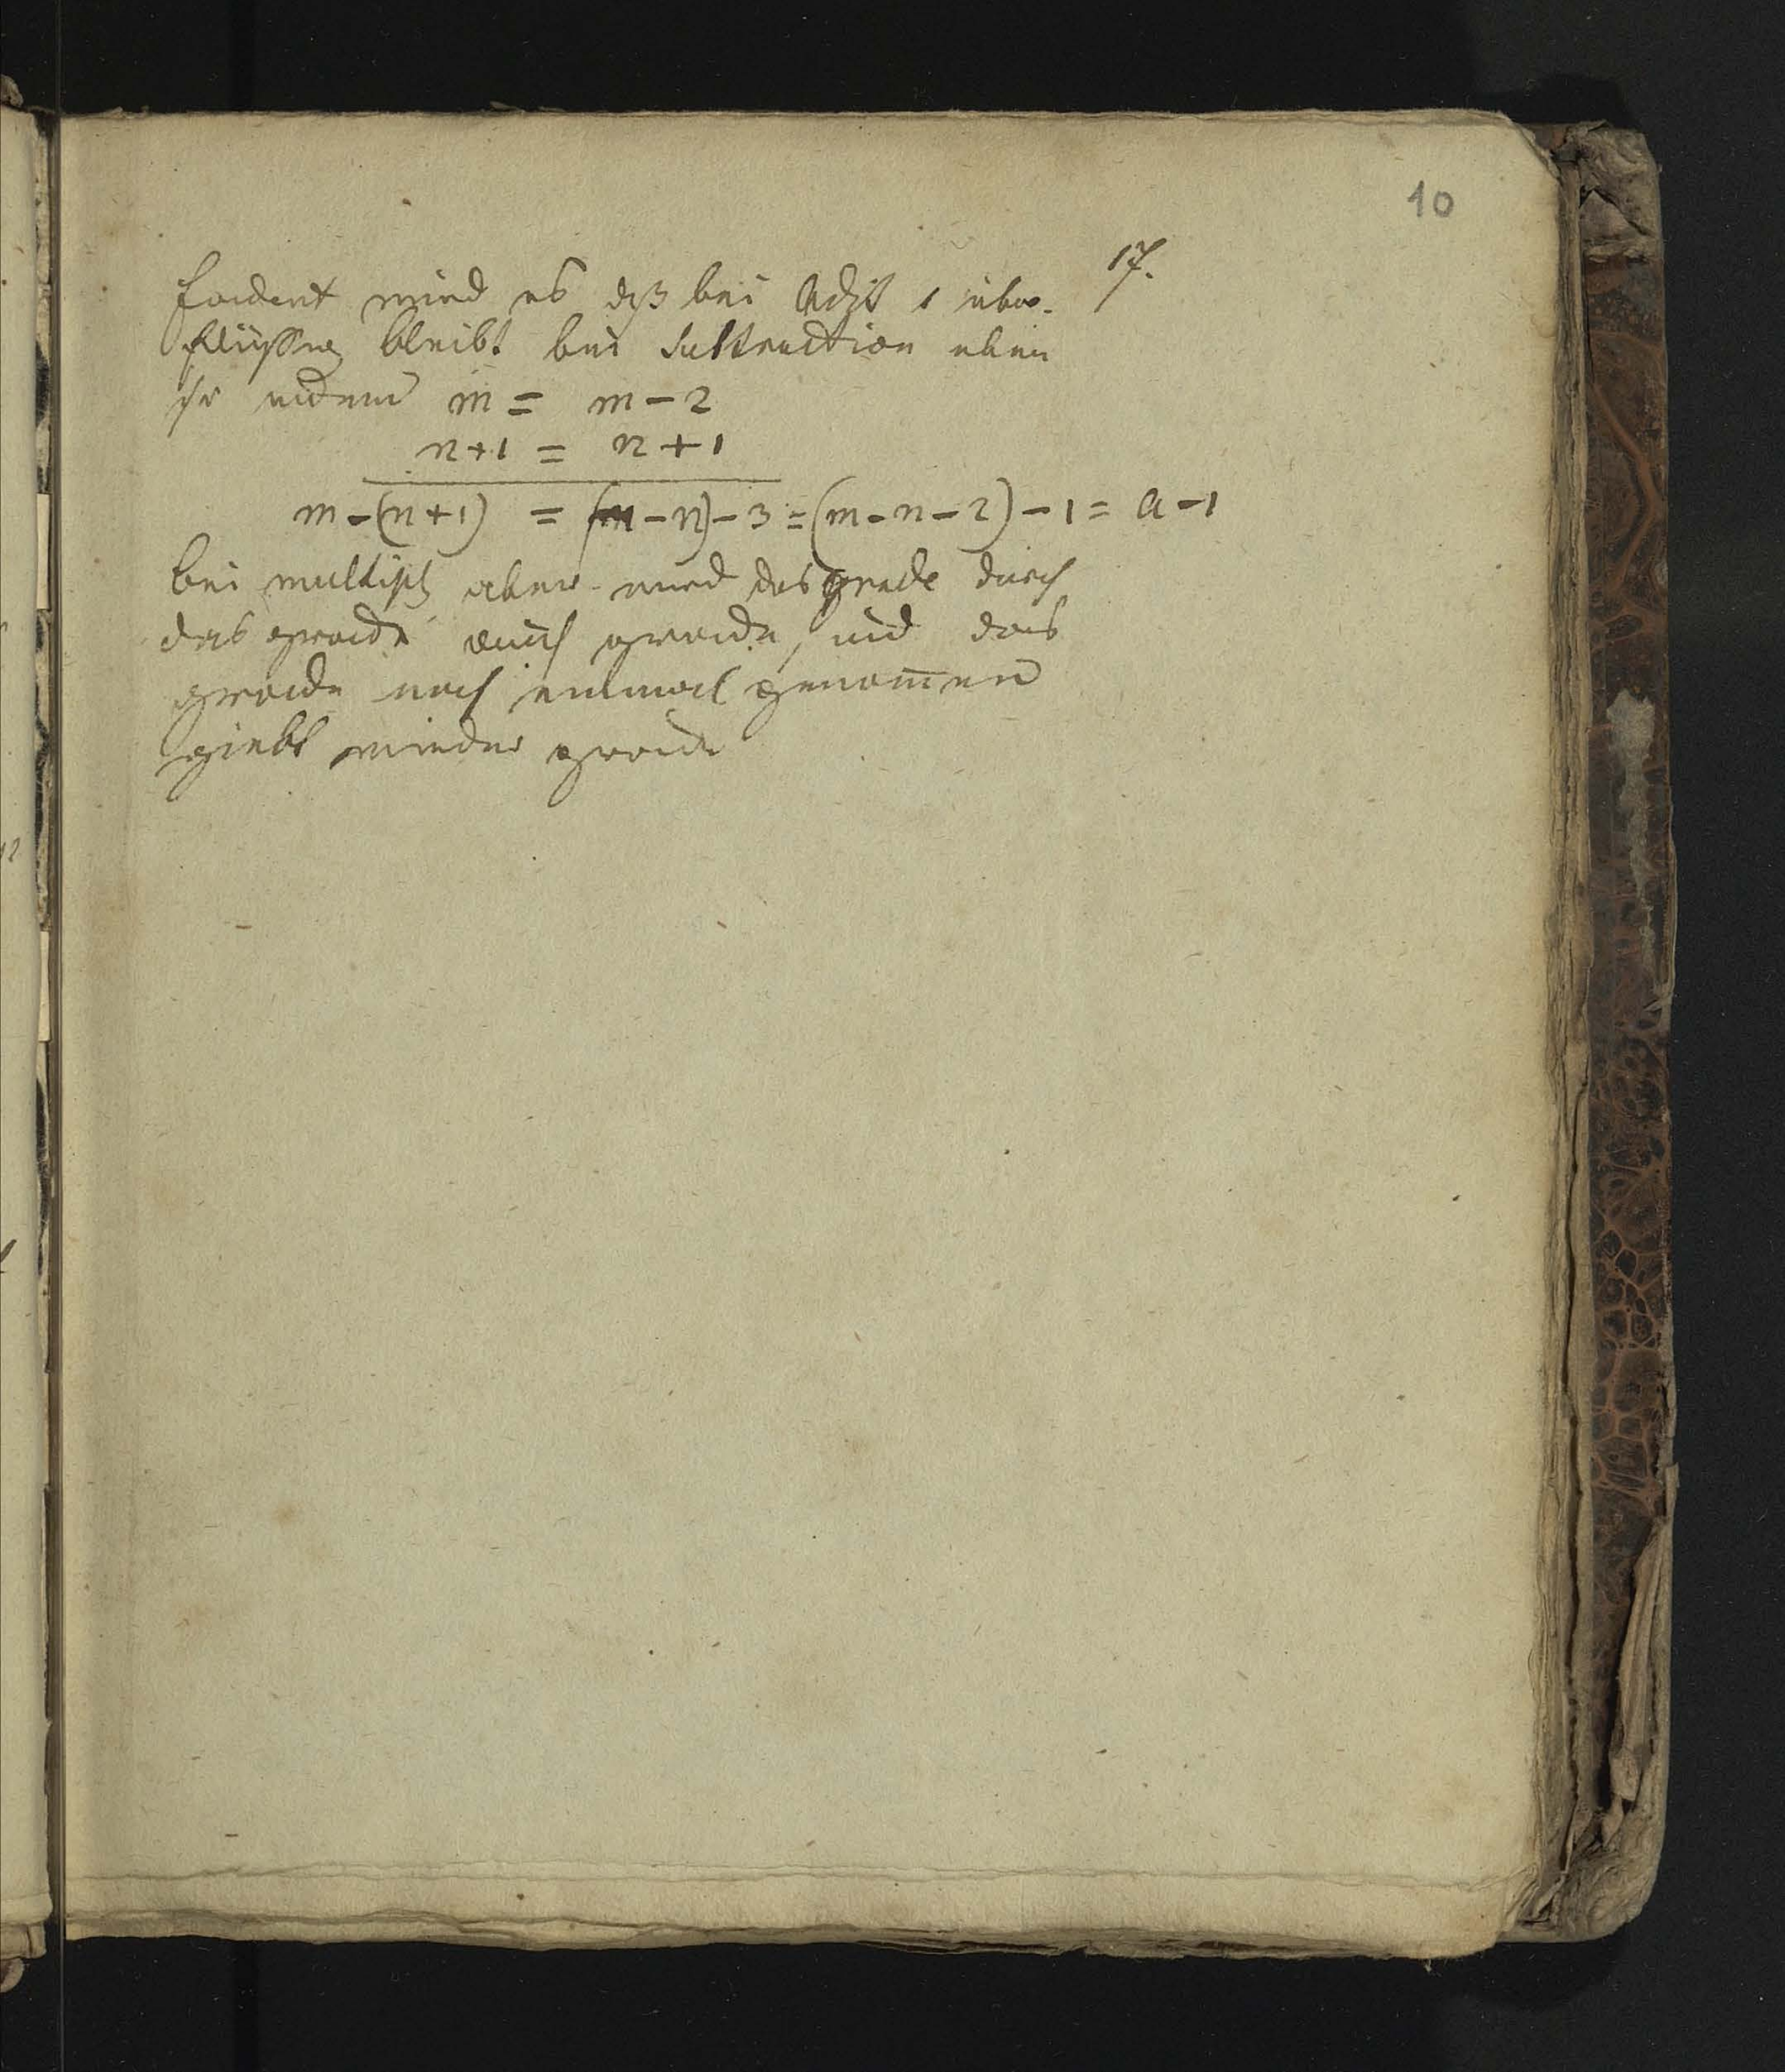 10
17.
fordert wird es dß bei Addit 1 über-
flüssig bleibt bei Subtraction eben
so indem m = m - 2
n+1 = n + 1
m-(n+1) = (m-n)-3=(m-n-2)-1= a-1
bei multipl aber wird das grade durch
das grade auch grade, und das
grade noch einmal genom̄en
giebt wieder grade